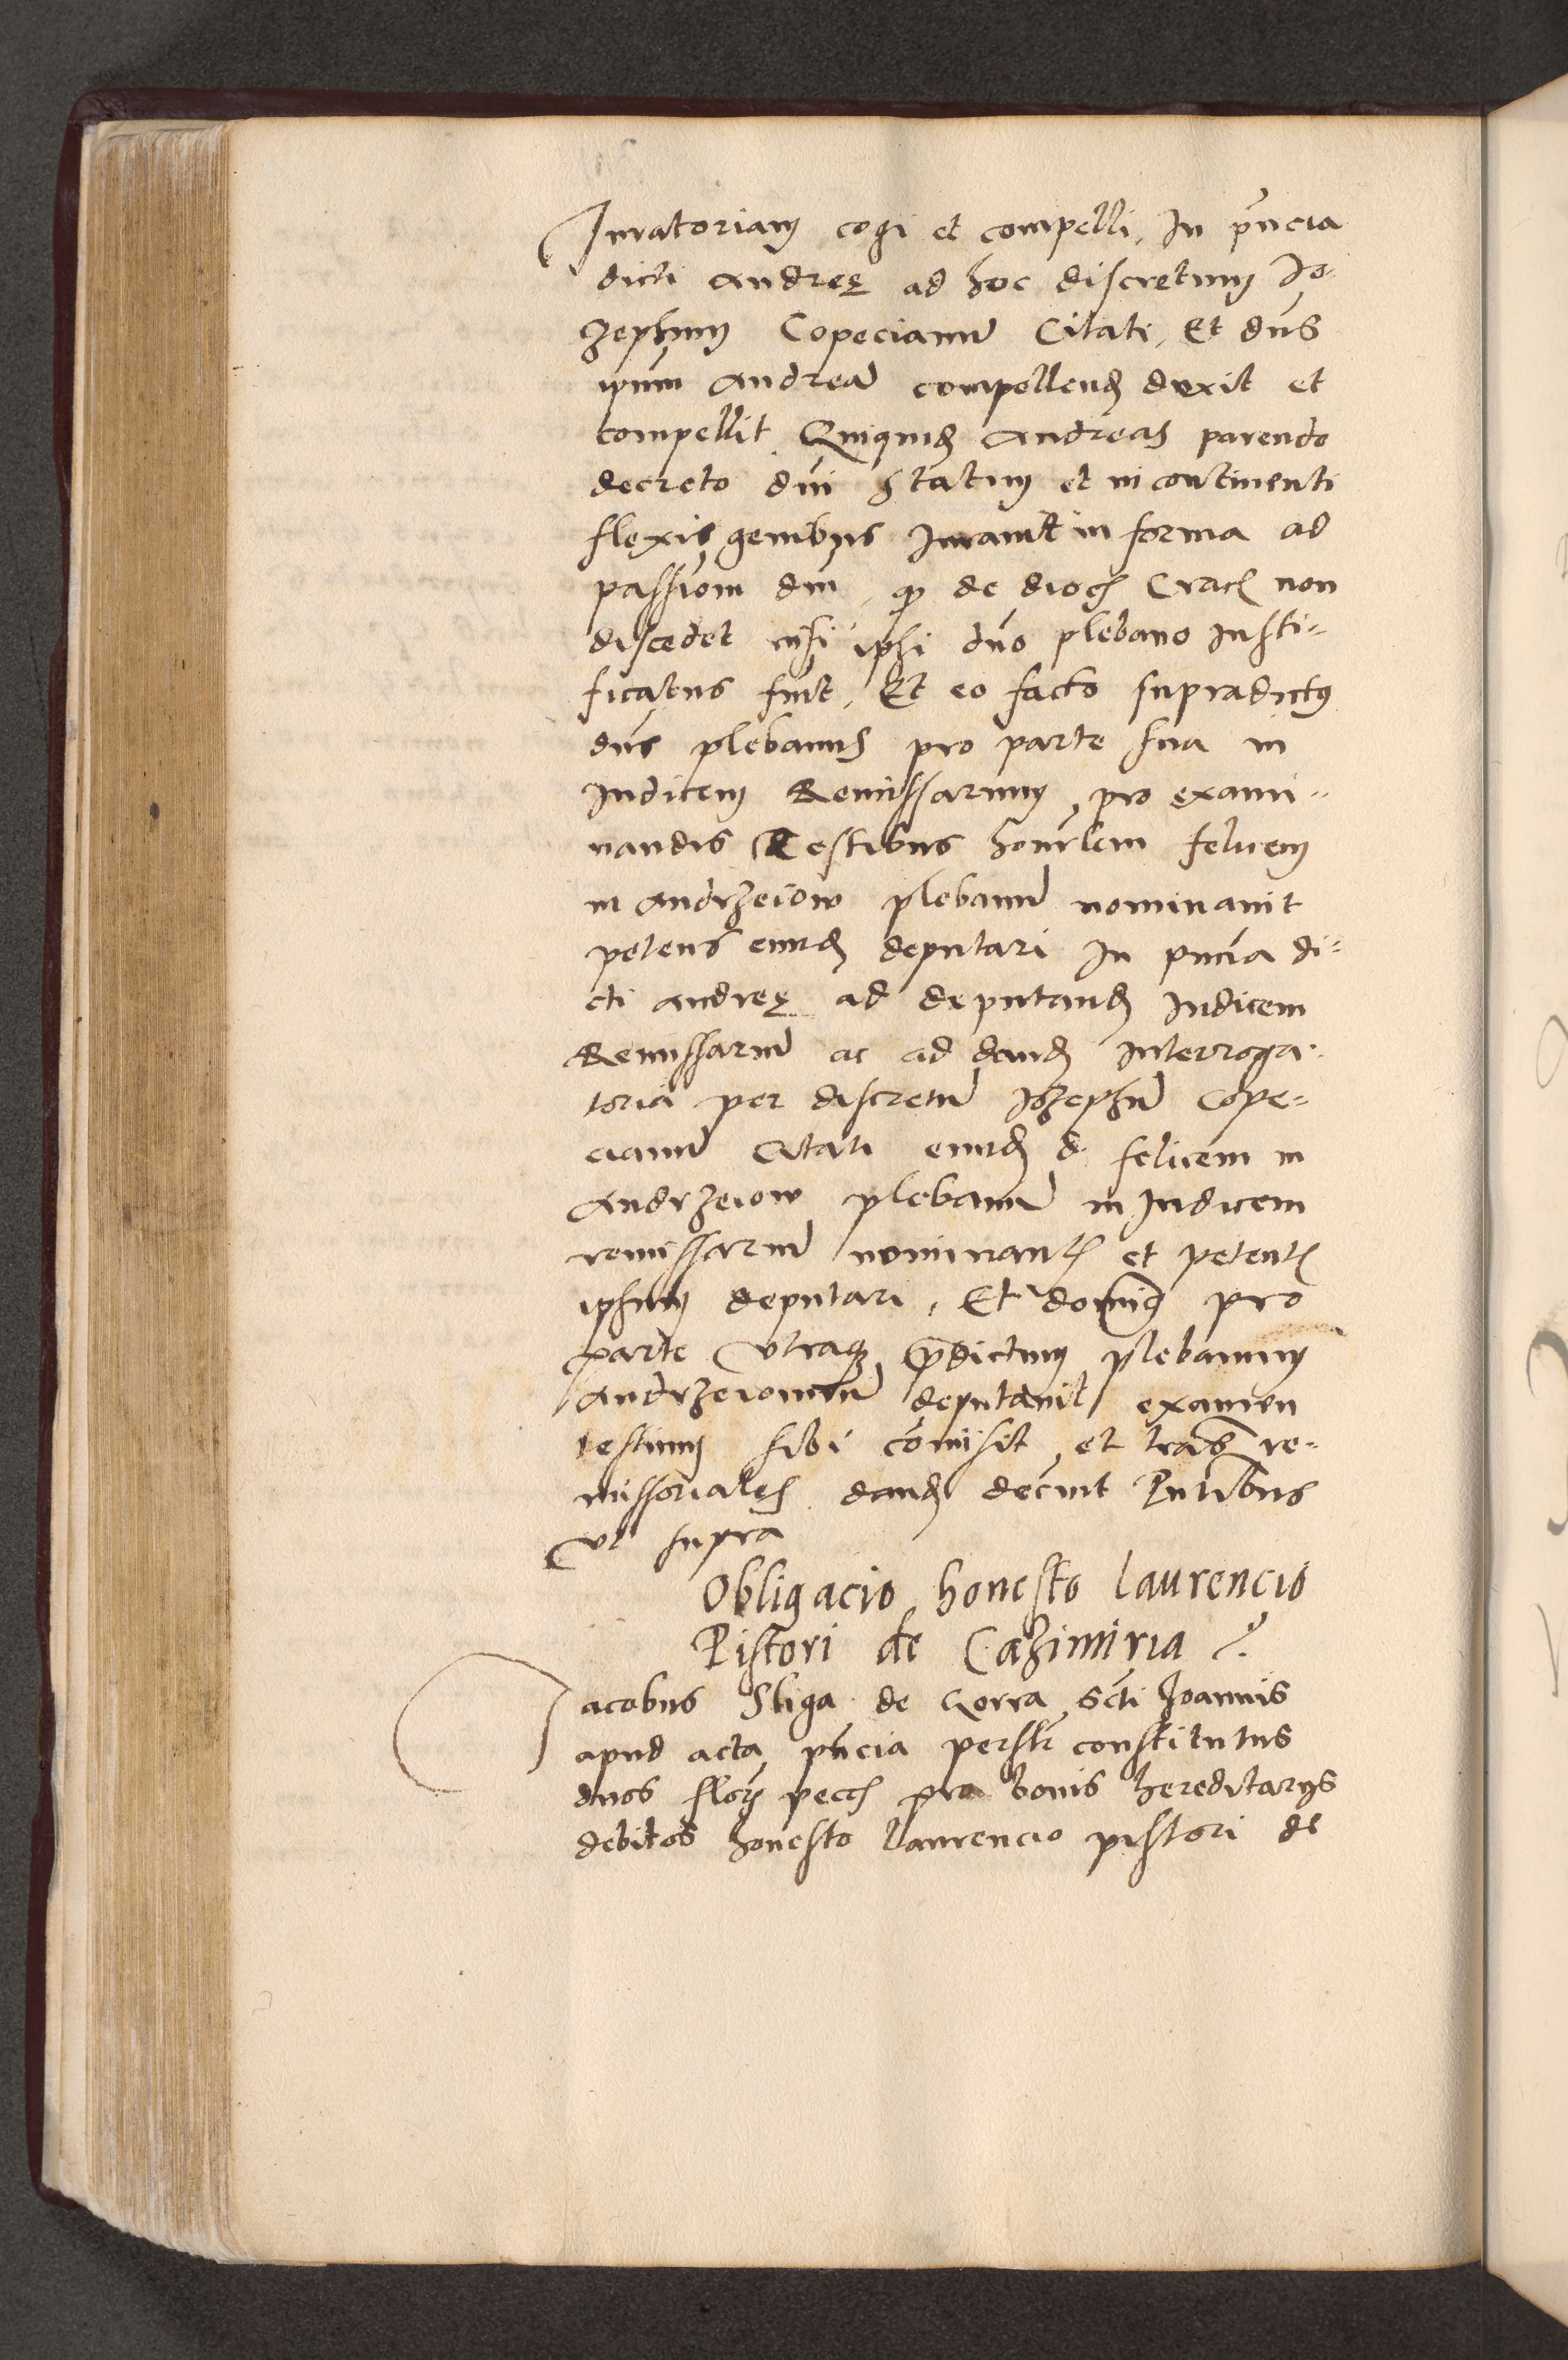 Iuratoriam cogi et compelli, In pn̄cia
dicti Andreę ad hoc discretum Io-
zephum Copecianū Citati, Et dn̄s
ipum Andreā compellend duxit et
compellit. Quiquid Andreas parendo
decreto dn̄i statim et in continenti
flexis genibus Iuravit in forma ad
passiom dni, q de dioc Crac non
discedet nisi ipsi dn̄o plebano Iusti=
ficatus fuit, Et eo facto supradictus
dn̄s plebanus pro parte sua in
Iudicem Remissarium, pro exami=
nandis Testibus honrlem felicem
in Andrzeiow plebanū nominavit
petens eund deputari In pn̄cia di=
cti Andreę ad deputand Iudicem
Remissariū ac ad dand Interroga-
toria per discretū Iozephū Cope=
cianū Citati eund d felicem in
Andrzeiow plebanū in Iudicem
remissariū nominant et petent
ipsum deputari, Et domin9 pro
parte utraq p̄dictum plebanum
Andrzeiouien deputavit examen
testium sibi com̄isit, et lrās re-
missoriales dand decrevit Pn̄tibus
ut supra
Obligacio honesto Laurencio
Pistori de Cazimiria
Jacobus Sliga de Gorra Sc̄ti Joannis
apud acta pn̄cia persr constitutus
duos flor pecc pro bonis hereditarys
debitos honesto Laurencio pistori de